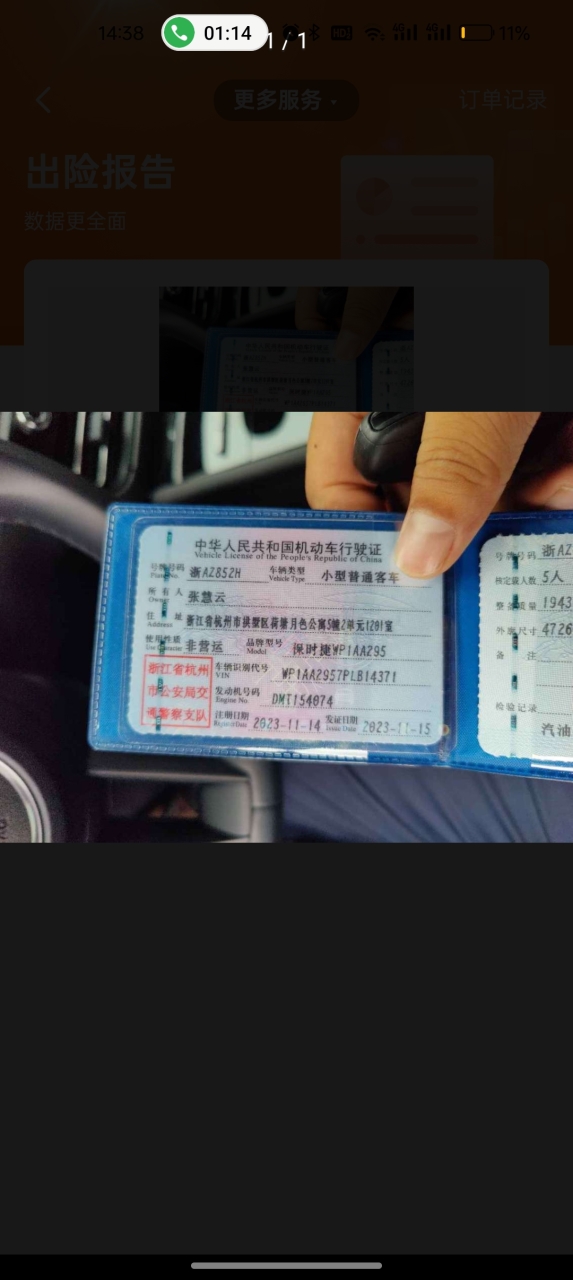 14:38
01:14
1 / 1
HD
11%
更多服务
订单记录
出险报告
数据更全面
中华人民共和国机动车行驶证
Vehicle License of the People's Republic of China
号牌号码 浙AZ852H 车辆类型 小型普通客车
Plate No. Vehicle Type
所有人 张慧云
Owner
住址 浙江省杭州市拱墅区荷塘月色公寓5幢2单元1201室
Address
使用性质 非营运 品牌型号 保时捷WP1AA295
Use Character Model
浙江省杭州
市公安局交
通警察支队
车辆识别代号 WP1AA2957PLB14371
VIN
发动机号码 DMT154074
Engine No.
注册日期 2023-11-14 发证日期 2023-11-15
Register Date Issue Date
号牌号码 浙AZ
核定载人数 5人
整备质量 1943
外廓尺寸 4726
备注
检验记录
汽油